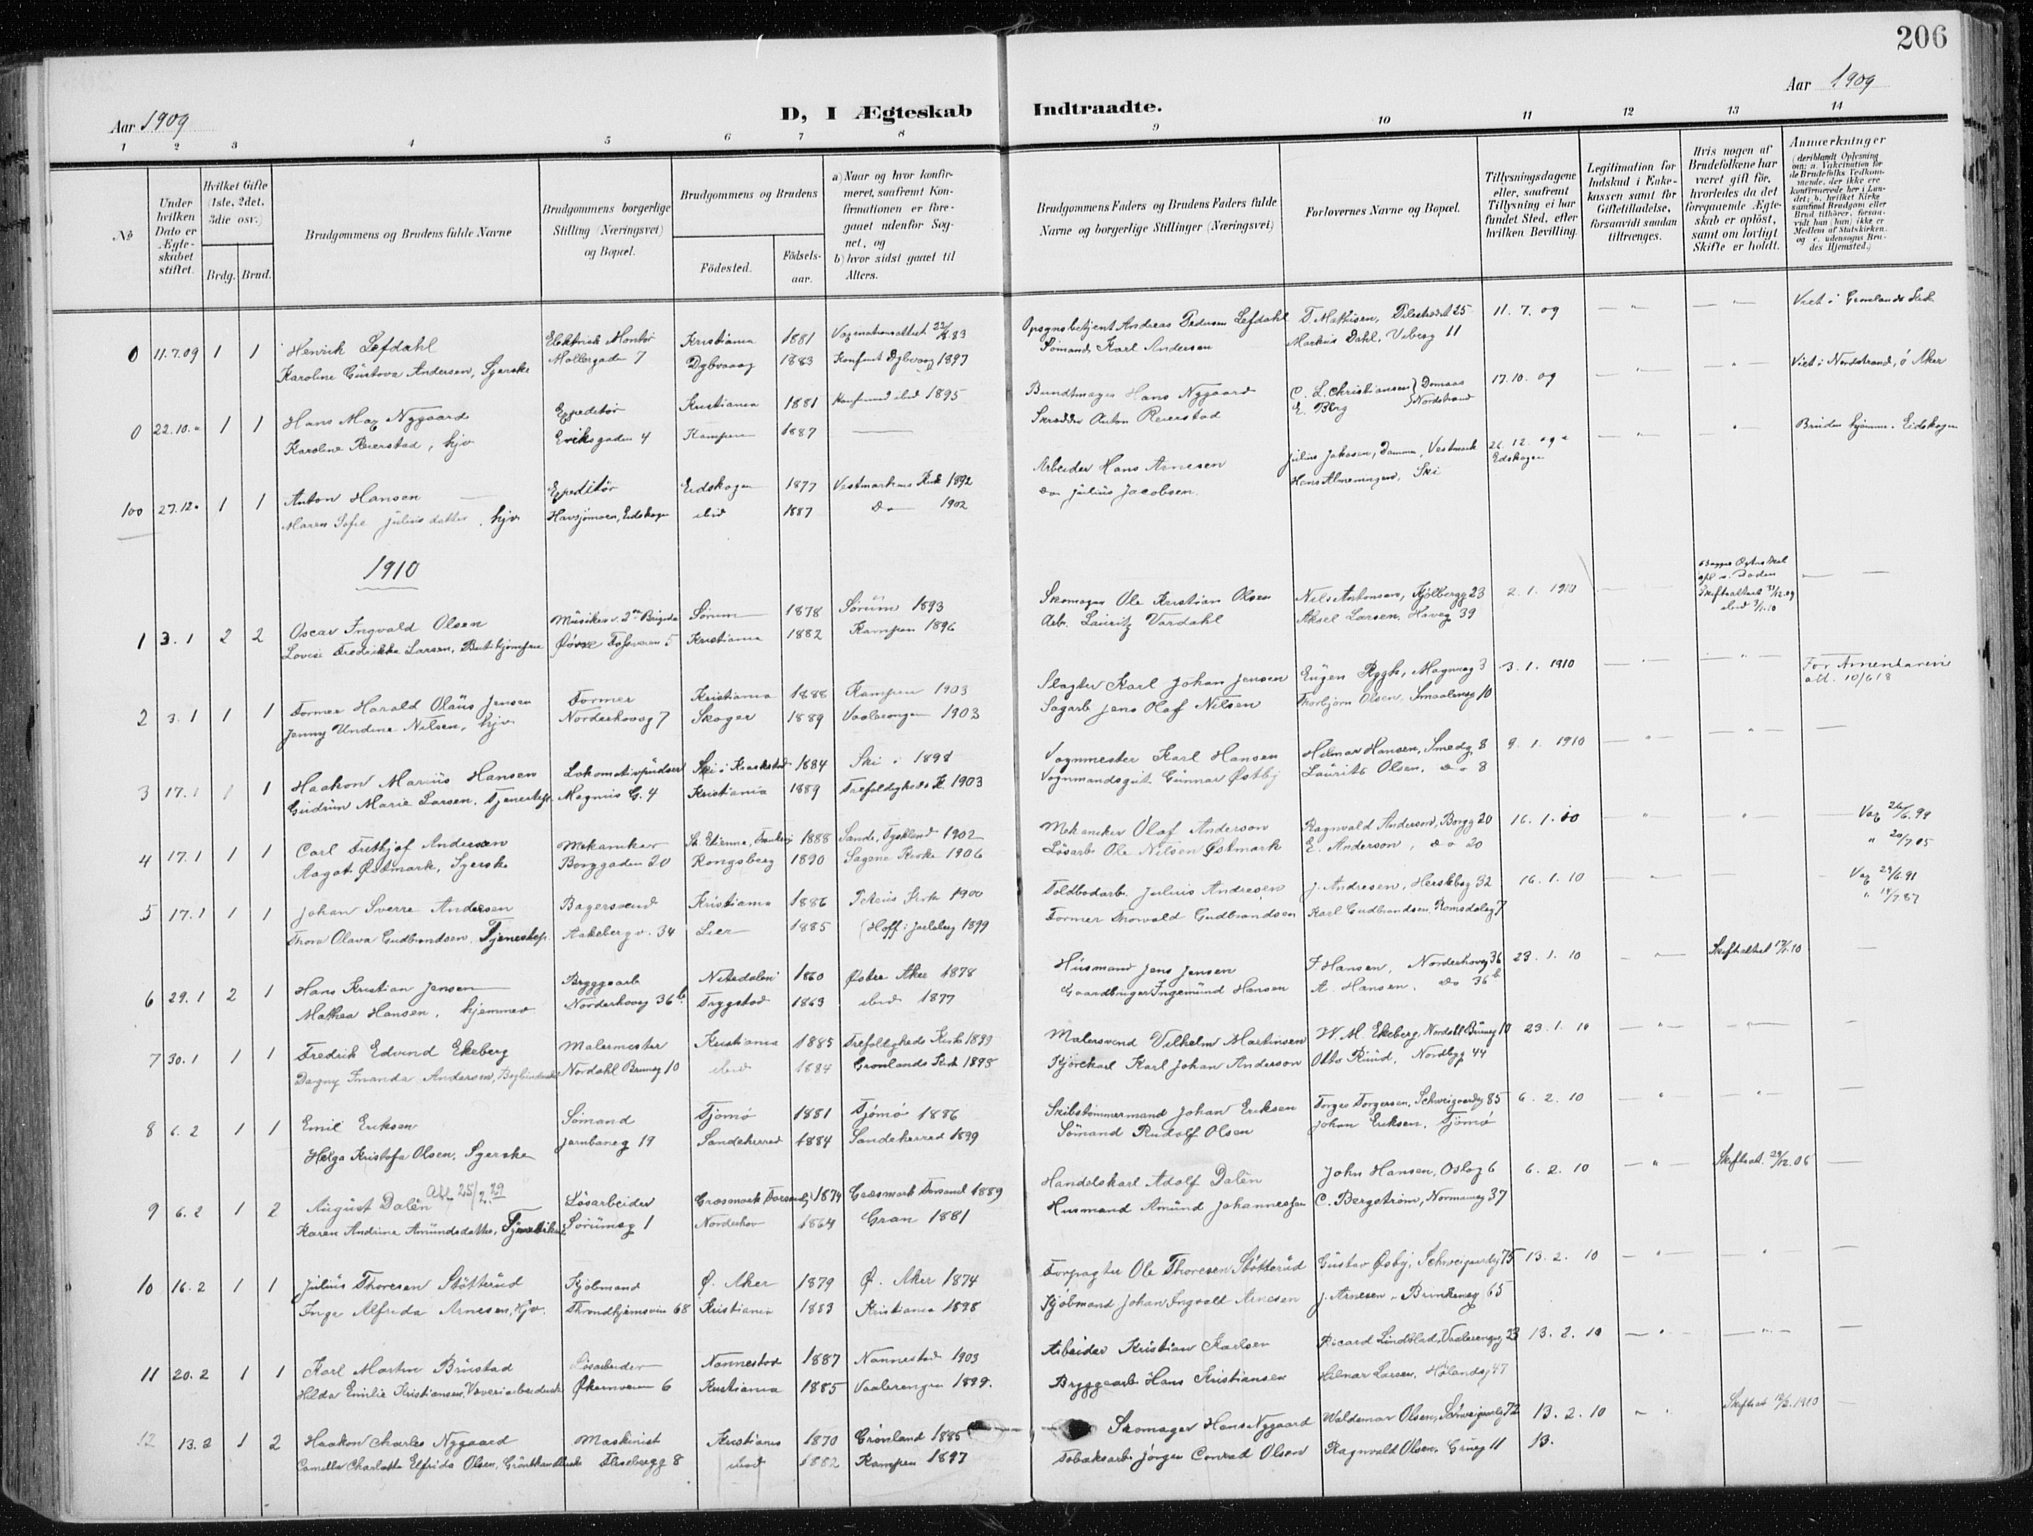 206
Aar 1909
D, I Ægteskab Indtraadte.
Aar 1909
1 2 3 4 5 6 7 8 9 10 11 12 13 14
No
Under hvilken Dato er Ægteskabet stiftet.
Hvilket Gifte (1ste, 2det, 3die osv.)
Brdg. Brud.
Brudgommens og Brudens fulde Navne
Brudgommens borgerlige Stilling (Næringsvei) og Bopæl.
Brudgommens og Brudens
Födested.
Födsels-aar.
a) Naar og hvor konfirmeret, saafremt Konfirmationen er foregaaet udenfor Sognet, og
b) hvor sidst gaaet til Alters.
Brudgommens Faders og Brudens Faders fulde Navne og borgerlige Stillinger (Næringsvei)
Forlovernes Navne og Bopæl.
Tillysningsdagene eller, saafremt Tillysning ei har fundet Sted, efter hvilken Bevilling.
Legitimation for Indskud i Enkekassen samt for Giftetilladelse, forsaavidt saadan tiltrænges.
Hvis nogen af Brudefolkene har været gift för, hvorledes da det foregaaende Ægteskab er oplöst, samt om lovligt Skifte er holdt.
Anmærkninger
(deriblandt Oplysning om: a. Vakcination for de Brudefolks Vedkommende, der ikke ere konfirmerede her i Landet; b. hvilket Kirkesamfund Brudgom eller Brud tilhörer, forsaavidt han (hun) ikke er Medlem af Statskirken, og c. udensogns Brudes Hjemsted.)
0 11.7.09 1 1 Henrik Lefdahl Elektrisk Montör Kristiania 1881 Opsynsbetjent Andreas Pedersen Lefdahl T. Mathisen, Pilestrædet 25 11.7.09 Viet i Grønlands Kirke
Karoline Gustova Andersen, Syerske Møllergaden 7 Dybvaag 1883 Konfirmt Dybvaag 1897 Sömand Karl Andersen Markus Dahl, Viberg 11
0 22.10 " 1 1 Hans Max Nygaard Expeditör Kristiania 1881 Konfirmed ibid 1895 Bundtmager Hans Nygaard C. L. Christiansen Domaas 17.10.09 Viet i Nordstrand, Ö Aker
Karoline Reierstad, hjv Eriksgaden 4 Kampen 1887 Skrædder Anton Reierstad E. Berg Nordstrand
100 27.12 " 1 1 Anton Hansen Expeditör Eidskogen 1877 Vestmarkens Kirke 1892 Arbeider Hans Arnesen Julius Jakosen, Vestmark 26.12.09 Brudens hjemme Eidskogen
Maren Sofie Juliusdatter, hjv Eidskogen ibid 1887 Do 1902 Do Julius Jacobsen Ski Eidskogen
1910
1 3.1 2 2 Oscar Ingvald Olsen Musiker v. 2den Brigade Sörum 1878 Sörum 1893 Skomager Ole Kristian Olsen Nils Antonsen, 23 2.1.1910
Lovise Fredrikke Larsen, Øvre Fossveien 5 Kristiania 1882 Kampen 1896 Arb. Lauritz Vardahl Aksel Larsen, Haveg 39
2 3.1 1 1 Former Harald Olaus Jensen Former Kristiania 1888 Kampen 1903 Slagter Karl Johan Jensen Eugen Rygh, Magnusg 3 3.1.1910
Jenny Undine Nilsen, hjv. Norderhovsg 7 Skoger 1889 Vaalerengen 1903 Sagarb Jens Olaf Nilsen Thorbjørn Olsen, Smaalensg 10 att. 10/6 18
3 17.1 1 1 Haakon Marius Hansen Lokomotivpudser Ski i Kraakstad 1884 Ski i 1898 Vognmester Karl Hansen Hilmar Hansen, Smedg 8 9.1.1910
Gudrun Marie Larsen, Tjenestep. Magnus G. 4 Kristiania 1889 Trefoldigheds K 1903 Vognmandsgut. Gunnar Østby Laurits Olsen, do 8
4 17.1 1 1 Carl Fridtjof Andersen Mekaniker St. Etienne, Frankrig 1888 Sande, Tyskland 1902 Mekaniker Olaf Anderson Ragnvald Anderson, Borgg 20 16.1.10 Vac 26/6.99
Aagot Østmark, Syerske Borggaden 20 Kongsberg 1890 Sagene Kirke 1906 Løsarb Ole Nilsen Østmark E. Anderson, do 20 " 20/7 05
5 17.1 1 1 Johan Sverre Andersen Bagersvend Kristiania 1886 Petrus Kirke 1900 Toldbodarb. Julius Andresen J. Andresen, Herslebsg 32 16.1.10 Vac 29/6.91
Thora Olava Gudbrandsen, Tjenestep. Aakebergv. 34 Lier 1885 (Hoff i Jarlsberg 1899 Former Thorvald Gudbrandsen Karl Gudbrandsen, Romsdalsg 7 " 14/9 87
6 29.1 2 1 Hans Kristian Jensen Bryggearb Nitedalen 1860 Østre Aker 1878 Husmand Jens Jensen F. Hansen, Norderhovsg 36 23.1.10
Mathea Hansen, hjemmev Norderhovsg 36 b. Trygstad 1863 ibid 1877 Gaardbruger Ingemund Hansen A. Hansen, do 36 b
7 30.1 1 1 Fredrik Edvind Ekeberg Malermester Kristiania 1885 Trefoldigheds Kirke 1899 Malersvend Vilhelm Martinsen W. M. Ekeberg, Nordahl Brunsg 10 23.1.10
Dagny Imanda Andersen, Nordahl Brunsg 10 ibid 1884 Grønlands Kirke 1898 Kjörekarl Karl Johan Anderson Otto Ruud, Nordbyg 44
8 6.2 1 1 Emil Eriksen Sömand Tjömö 1881 Tjömö 1886 Skibstömmermand Johan Eriksen Torger Torgersen, Schweigaardsg 85 6.2.10
Helga Kristofa Olsen, Syerske Jernbaneg 19 Sandeherred 1884 Sandeherred 1899 Sömand Rudolf Olsen Johan Eriksen, Tjömö
9 6.2 1 2 August Dalén Løsarbeider 1874 1889 Handelskarl Adolf Dalén John Hansen, Oslog 6 6.2.10
Karen Andrine Amundsdatter, Sörumsg 1 Norderhov 1864 Gran 1881 Husmand Amund Johannessen C. Bergström, Normansg 37
10 16.2 1 1 Julius Thoresen Støtterud Kjölmand Ø. Aker 1879 Ø. Aker 1874 Forpagter Ole Thoresen Støtterud Gustav Østby, Schweigaardsg 75 13.2.10
Inga Alfrida Arnesen, hjv. Throndhjemsvein 68 Kristiania 1883 Kristiania 1898 Kjöbmand Johan Ingvald Arnesen J. Arnesen, Brinkensg 65
11 20.2 1 1 Karl Martin Brustad Løsarbeider Nannestad 1887 Nannestad 1903 Arbeider Kristian Karlsen Ricard Lindblad, Vaalerengsg 23 13.2.10
Hilda Emilie Kristiansen, Væveriarbeiderske Økernveien 6 Kristiania 1885 Vaalerengen 1899. Bryggearb Hans Kristiansen Hilmar Larsen, Hølandsg 47
12 13.2 1 2 Haakon Charles Nygaard Maskinist Kristiania 1870 Grönland 1885 Skomager Hans Nygaard Waldemar Olsen, Schweigaardsg 72 13.2.10
Camilla Charlotte Elfrida Olsen, ibid 1882 Kampen 1897 Tobaksarb Jörgen Conrad Olsen Ragnvald Olsen, Grueg 11 13.